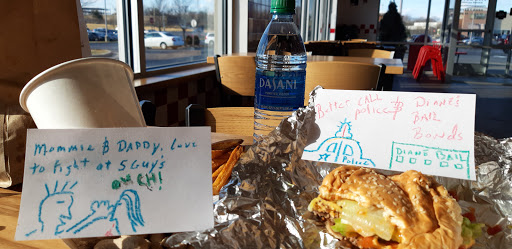 DASANI
Mommie & DADDY, Love
to fight at 5 Guy's
OUCH!
Better CALL
police
&
DIANE'S
BAIL
Bonds
Police
DIANE BAIL